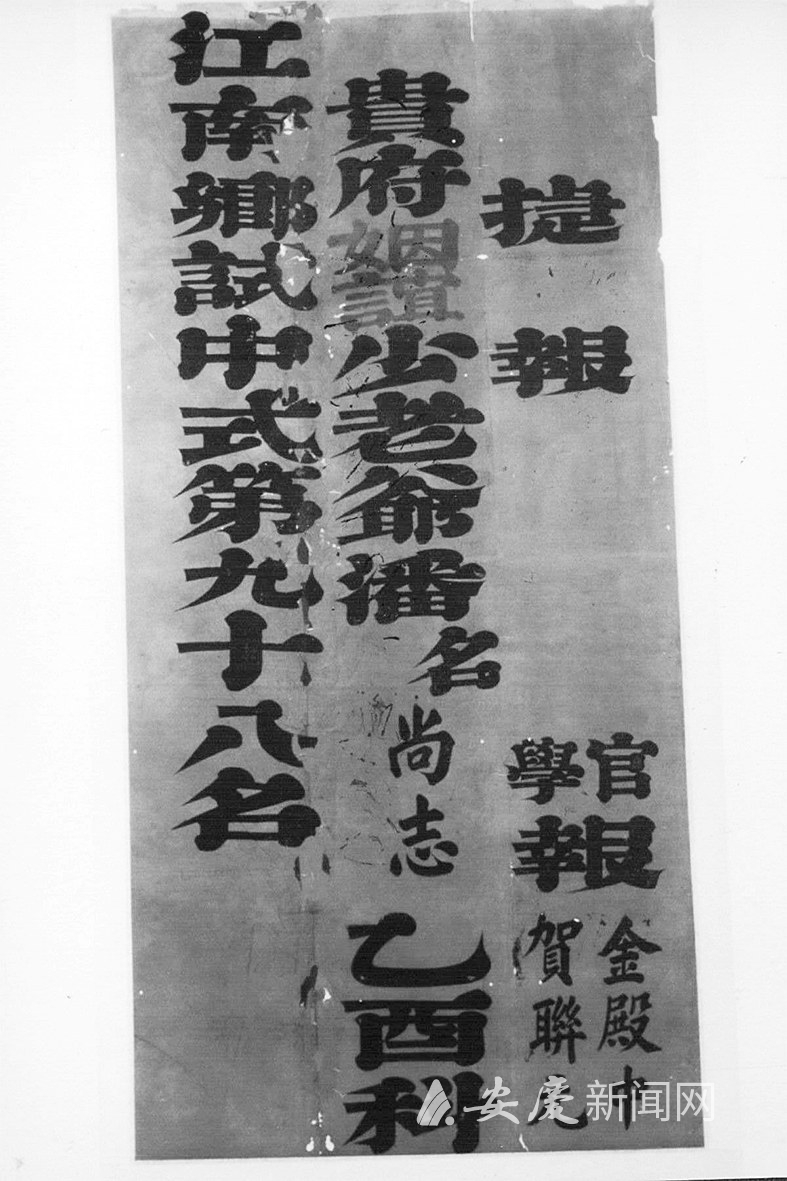 捷報
官學報
金殿中
賀聯元
貴府姻誼少老爺潘名尚志乙酉科
江南鄉試中式第九十八名
安庆新闻网